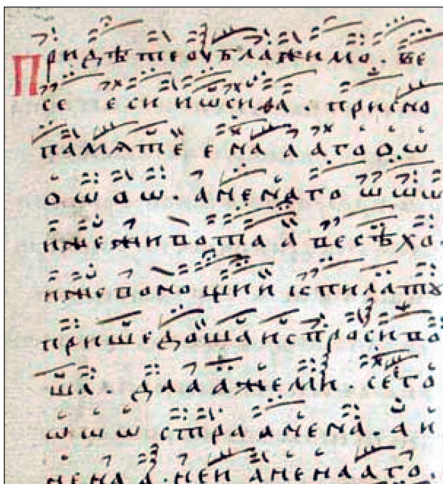 Придѣтеоублажимо · ве
се еси иѡсифа · присно
памѧте е на а атоѡѡ
оѡоѡ · аненато ѡѡѡ
иже живота а весѣхо ·
иже вонощии ко пилатꙋ
пришедоша испросиво
ша · да а ажеми · сего
ѡѡѡ стра анена · аи
нена а · неи аненаато ·